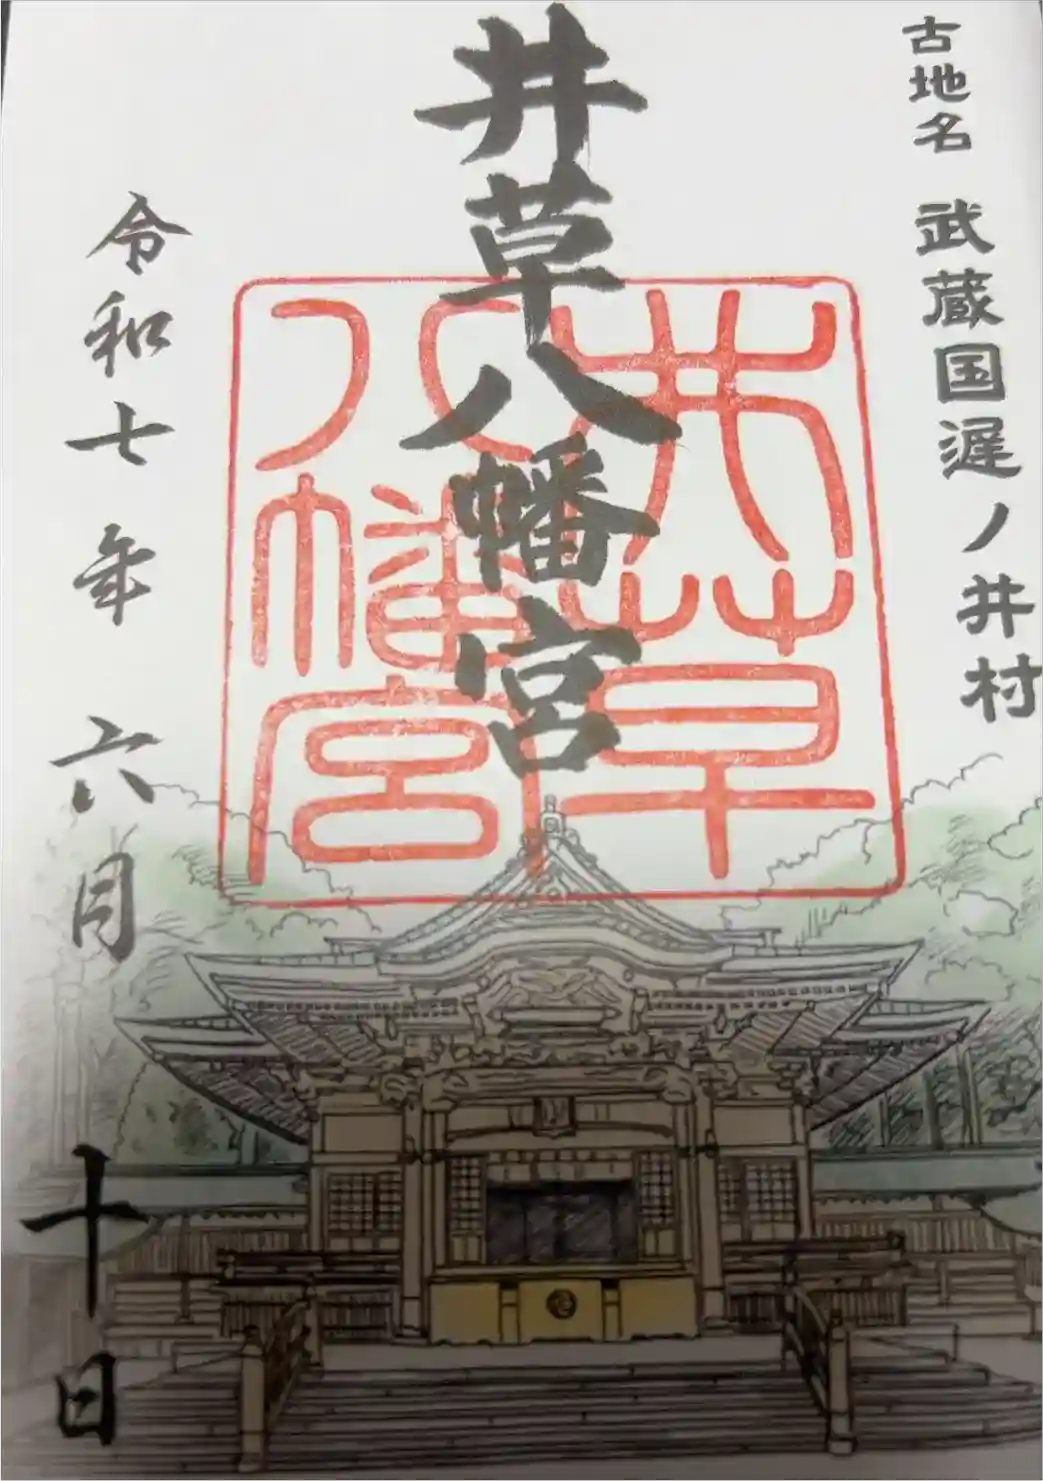 古地名 武蔵国遅ノ井村
井草八幡宮
井草
八幡宮
令和七年六月十日